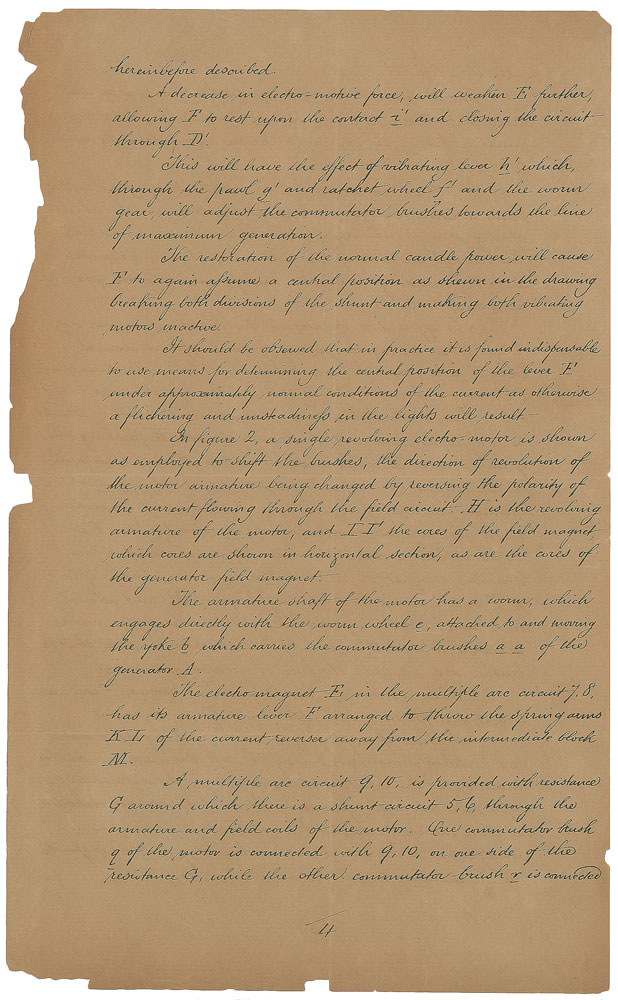 hereinbefore described.
A decrease in electro-motive force, will weaken E, further,
allowing F to rest upon the contact i' and closing the circuit
through D'.
This will have the effect of vibrating lever h' which,
through the pawl g' and ratchet wheel f' and the worm
gear, will adjust the commutator brushes towards the line
of maximum generation.
The restoration of the normal candle power will cause
F to again assume a central position as shewn in the drawing
breaking both divisions of the shunt and making both vibrating
motors inactive.
It should be observed that in practice it is found indispensable
to use means for determining the central position of the lever F
under approximately normal conditions of the current as otherwise
a flickering and unsteadiness in the lights will result.
In figure 2, a single revolving electro-motor is shown
as employed to shift the brushes, the direction of revolution of
the motor armature being changed by reversing the polarity of
the current flowing through the field circuit. H is the revolving
armature of the motor, and I I' the cores of the field magnet,
which cores are shown in horizontal section, as are the cores of
the generator field magnet.
The armature shaft of the motor has a worm, which
engages directly with the worm wheel c, attached to and moving
the yoke b which carries the commutator brushes a a of the
generator A.
The electro magnet E, in the multiple arc circuit 7, 8,
has its armature lever F arranged to throw the spring arms
K L, of the current reverser away from the intermediate block
M.
A multiple arc circuit 9, 10, is provided with resistance
G around which there is a shunt circuit 5, 6, through the
armature and field coils of the motor. One commutator brush
q of the motor is connected with 9, 10, on one side of the
resistance G, while the other commutator brush r is connected
4